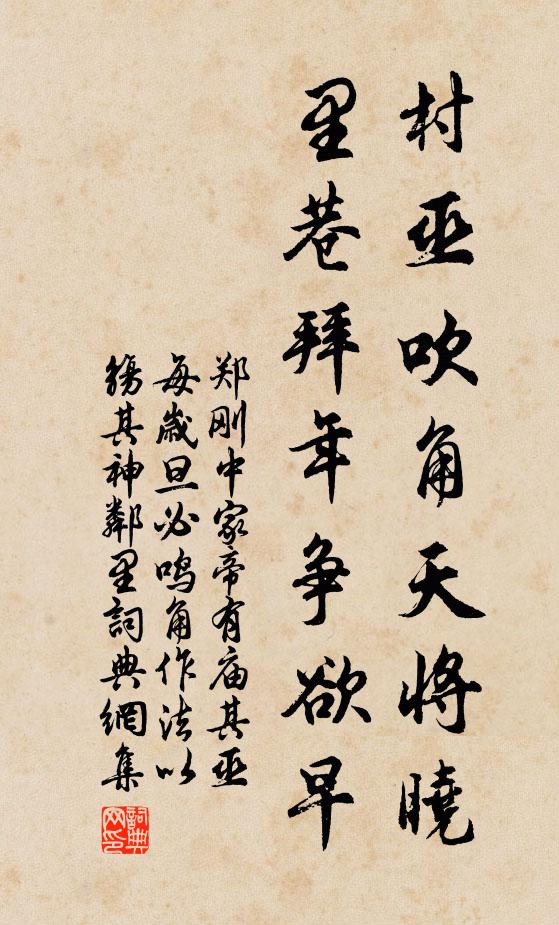 村巫吹角天將曉
里巷拜年争欲早
郑刚中家帝有庙其巫
每歲旦必鸣角作法以
觴其神鄰里詞典網集
詞典网印